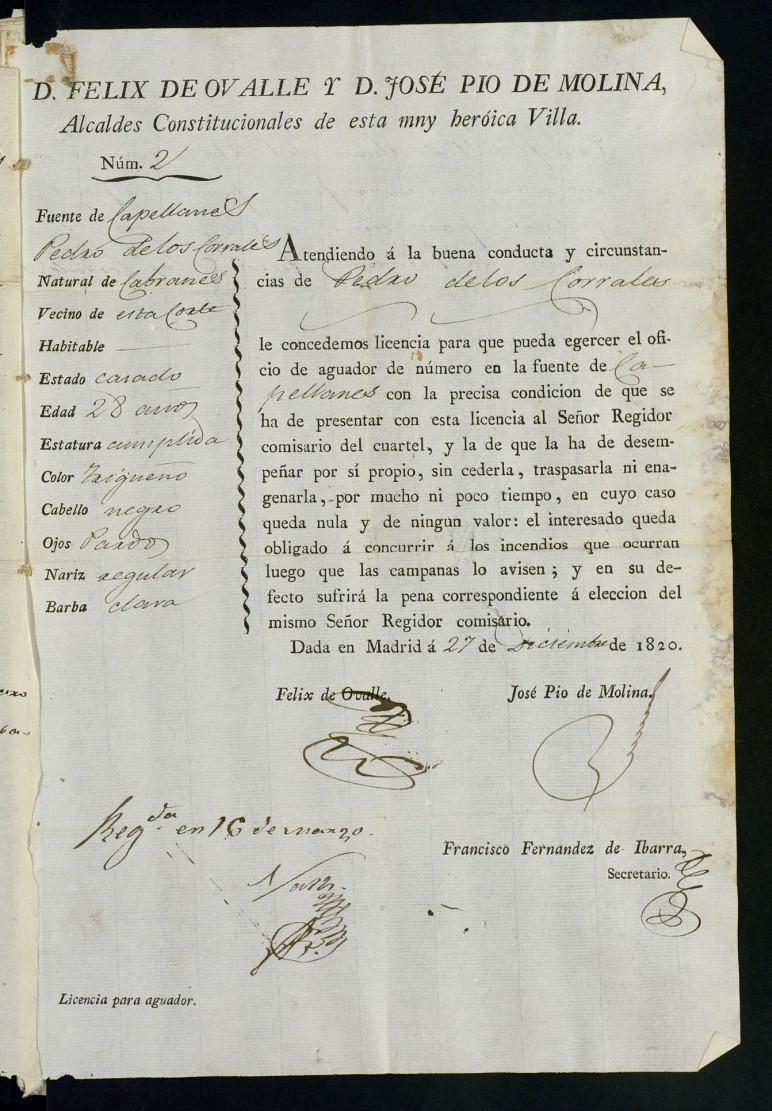 D. FELIX DE OVALLE Y D. JOSÉ PIO DE MOLINA,
Alcaldes Constitucionales de esta mny heróica Villa.
Núm. 2
Fuente de Capellanes
Pedro de los Corrales
Natural de Cabranes
Vecino de esta Corte
Habitable
Estado casado
Edad 28 años
Estatura cumplida
Color Trigueño
Cabello negro
Ojos Pardos
Nariz regular
Barba clara
Atendiendo á la buena conducta y circunstan-
cias de Pedro de los Corrales
le concedemos licencia para que pueda egercer el ofi-
cio de aguador de número en la fuente de Ca-
pellanes con la precisa condicion de que se
ha de presentar con esta licencia al Señor Regidor
comisario del cuartel, y la de que la ha de desem-
peñar por sí propio, sin cederla, traspasarla ni ena-
genarla, por mucho ni poco tiempo, en cuyo caso
queda nula y de ningun valor: el interesado queda
obligado á concurrir á los incendios que ocurran
luego que las campanas lo avisen; y en su de-
fecto sufrirá la pena correspondiente á eleccion del
mismo Señor Regidor comisario.
Dada en Madrid á 27 de Diciembre de 1820.
Felix de Ovalle.
José Pio de Molina.
Reg.da en 16 de marzo.
Francisco Fernandez de Ibarra,
Secretario.
Licencia para aguador.